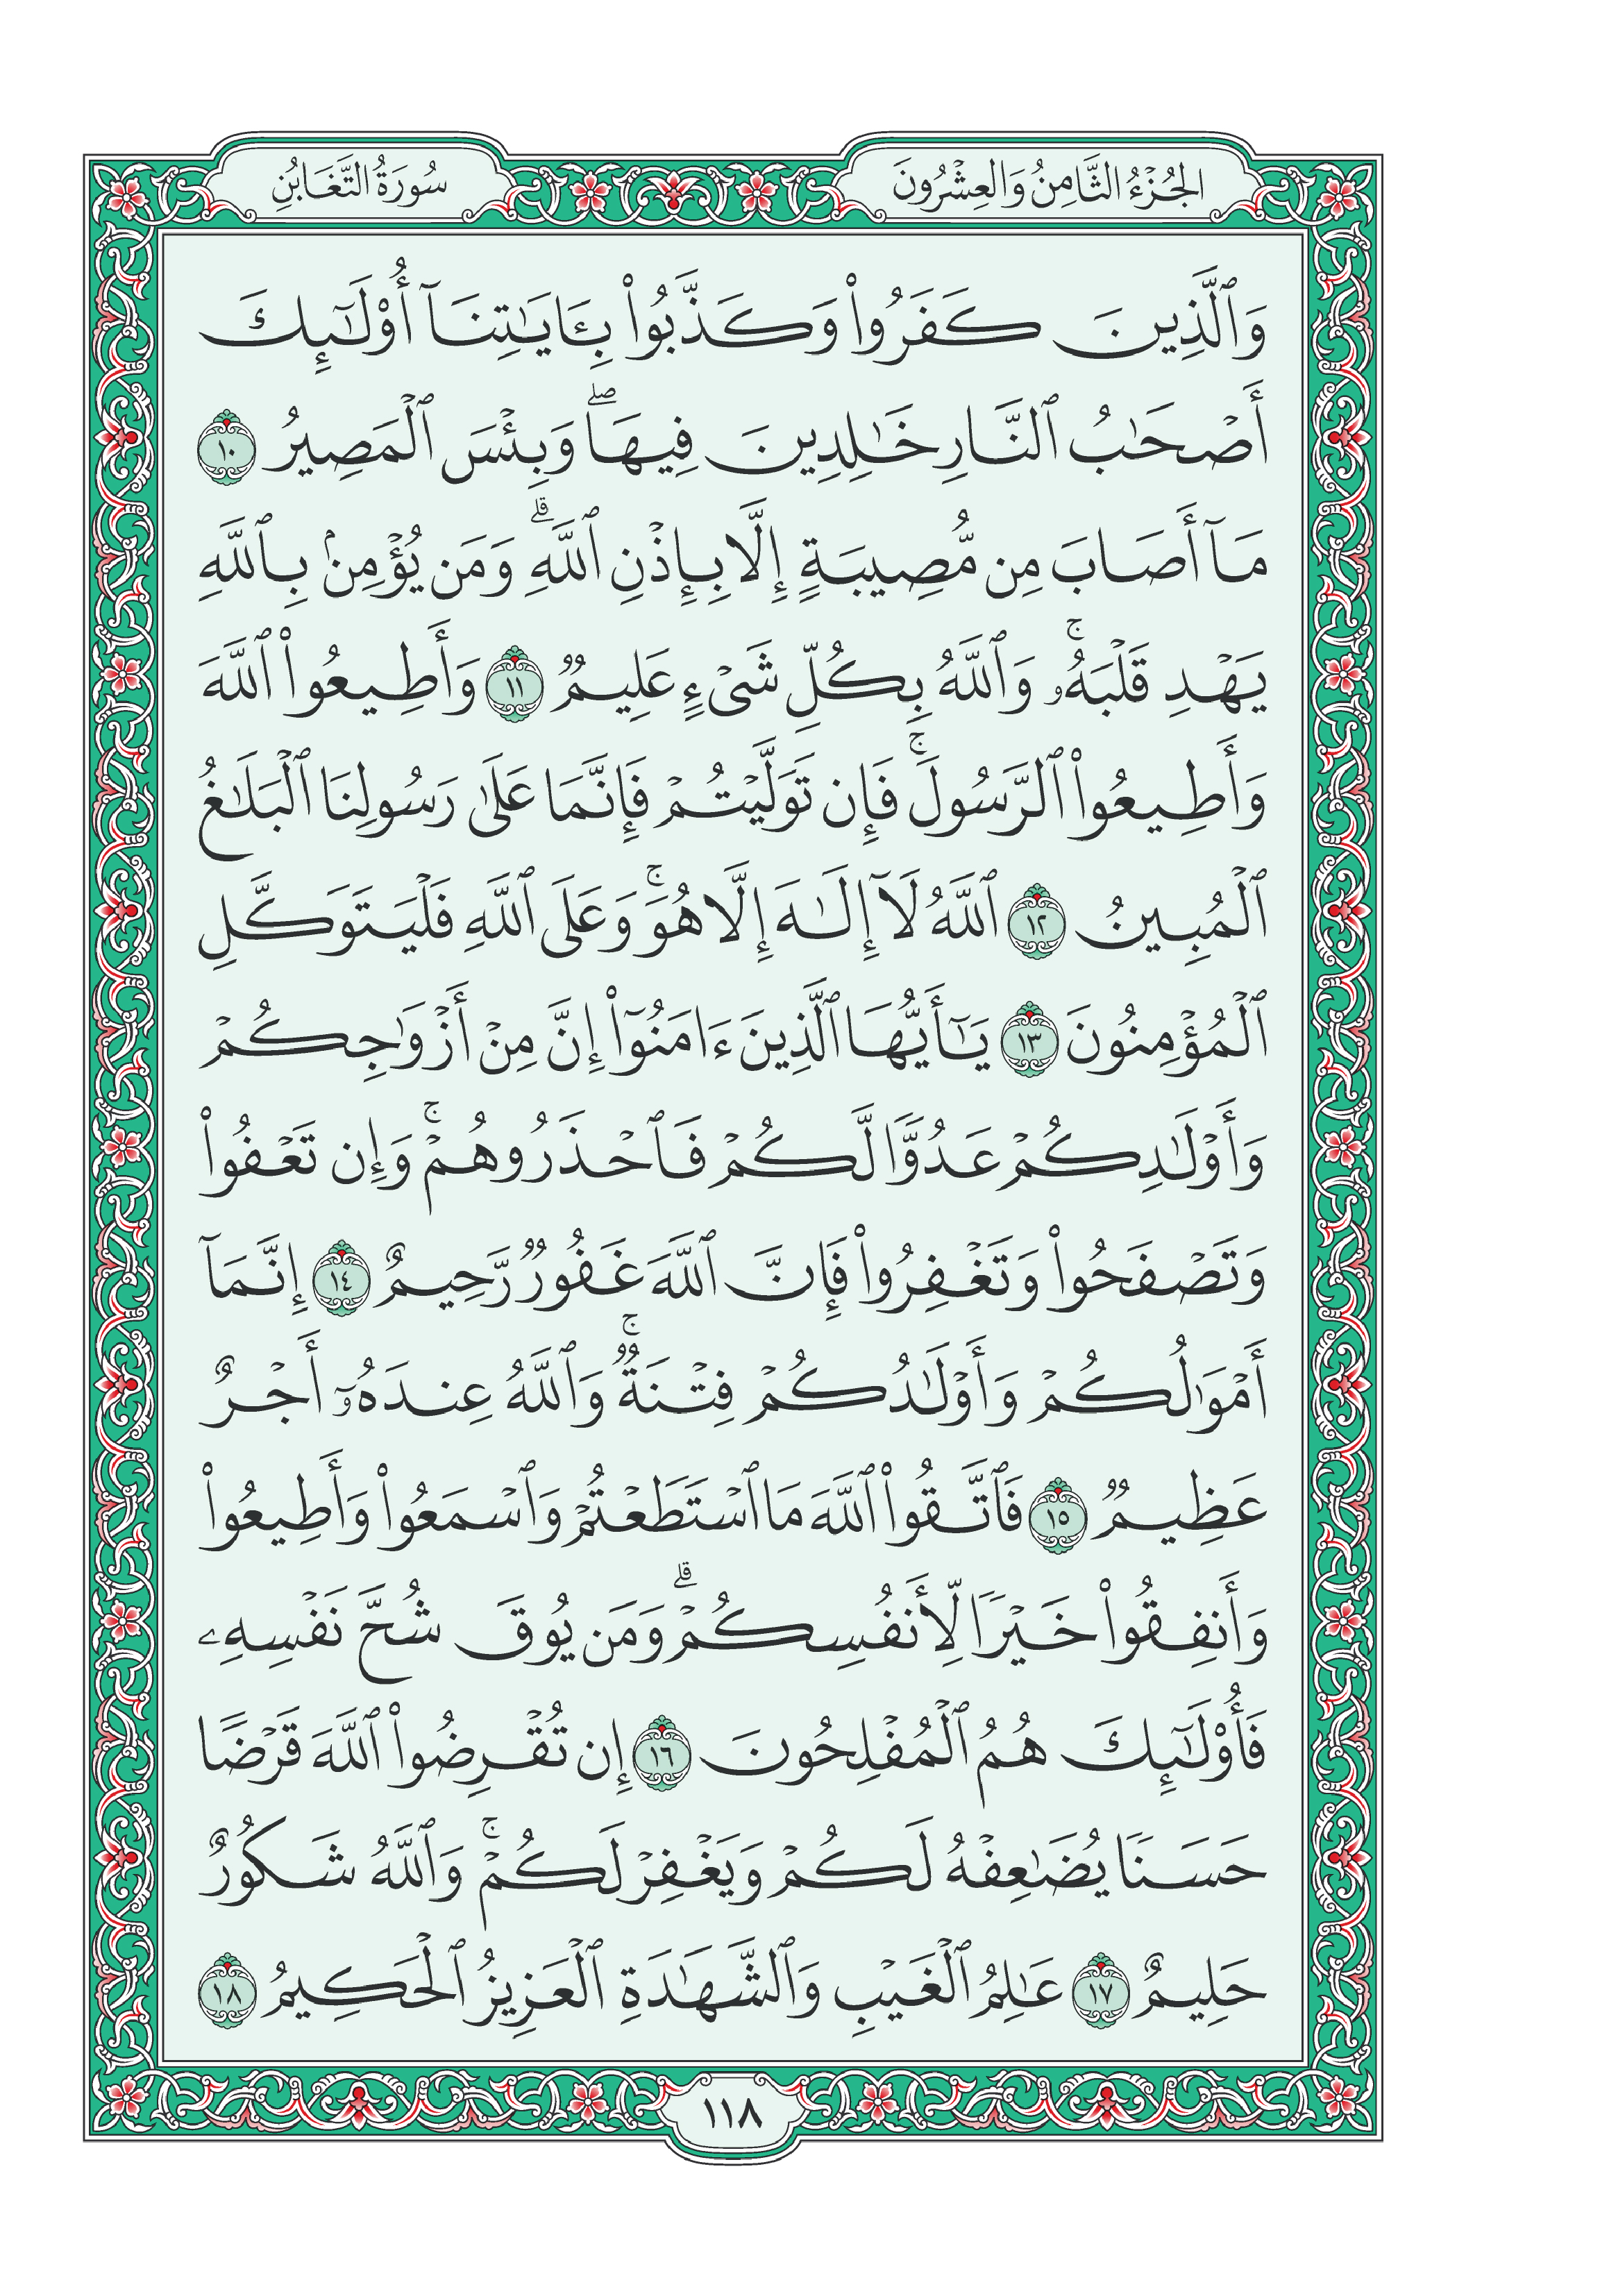 الجُزْءُ الثَّامِنُ وَالعِشْرُونَ
سُورَةُ التَّغَابُنِ
وَٱلَّذِينَ كَفَرُوا۟ وَكَذَّبُوا۟ بِـَٔايَـٰتِنَآ أُو۟لَـٰٓئِكَ
أَصْحَـٰبُ ٱلنَّارِ خَـٰلِدِينَ فِيهَا ۖ وَبِئْسَ ٱلْمَصِيرُ ١٠
مَآ أَصَابَ مِن مُّصِيبَةٍ إِلَّا بِإِذْنِ ٱللَّهِ ۗ وَمَن يُؤْمِنۢ بِٱللَّهِ
يَهْدِ قَلْبَهُۥ ۚ وَٱللَّهُ بِكُلِّ شَىْءٍ عَلِيمٌ ١١ وَأَطِيعُوا۟ ٱللَّهَ
وَأَطِيعُوا۟ ٱلرَّسُولَ ۚ فَإِن تَوَلَّيْتُمْ فَإِنَّمَا عَلَىٰ رَسُولِنَا ٱلْبَلَـٰغُ
ٱلْمُبِينُ ١٢ ٱللَّهُ لَآ إِلَـٰهَ إِلَّا هُوَ ۚ وَعَلَى ٱللَّهِ فَلْيَتَوَكَّلِ
ٱلْمُؤْمِنُونَ ١٣ يَـٰٓأَيُّهَا ٱلَّذِينَ ءَامَنُوٓا۟ إِنَّ مِنْ أَزْوَٰجِكُمْ
وَأَوْلَـٰدِكُمْ عَدُوًّا لَّكُمْ فَٱحْذَرُوهُمْ ۚ وَإِن تَعْفُوا۟
وَتَصْفَحُوا۟ وَتَغْفِرُوا۟ فَإِنَّ ٱللَّهَ غَفُورٌ رَّحِيمٌ ١٤ إِنَّمَآ
أَمْوَٰلُكُمْ وَأَوْلَـٰدُكُمْ فِتْنَةٌ ۚ وَٱللَّهُ عِندَهُۥٓ أَجْرٌ
عَظِيمٌ ١٥ فَٱتَّقُوا۟ ٱللَّهَ مَا ٱسْتَطَعْتُمْ وَٱسْمَعُوا۟ وَأَطِيعُوا۟
وَأَنفِقُوا۟ خَيْرًا لِّأَنفُسِكُمْ ۗ وَمَن يُوقَ شُحَّ نَفْسِهِۦ
فَأُو۟لَـٰٓئِكَ هُمُ ٱلْمُفْلِحُونَ ١٦ إِن تُقْرِضُوا۟ ٱللَّهَ قَرْضًا
حَسَنًا يُضَـٰعِفْهُ لَكُمْ وَيَغْفِرْ لَكُمْ ۚ وَٱللَّهُ شَكُورٌ
حَلِيمٌ ١٧ عَـٰلِمُ ٱلْغَيْبِ وَٱلشَّهَـٰدَةِ ٱلْعَزِيزُ ٱلْحَكِيمُ ١٨
١١٨